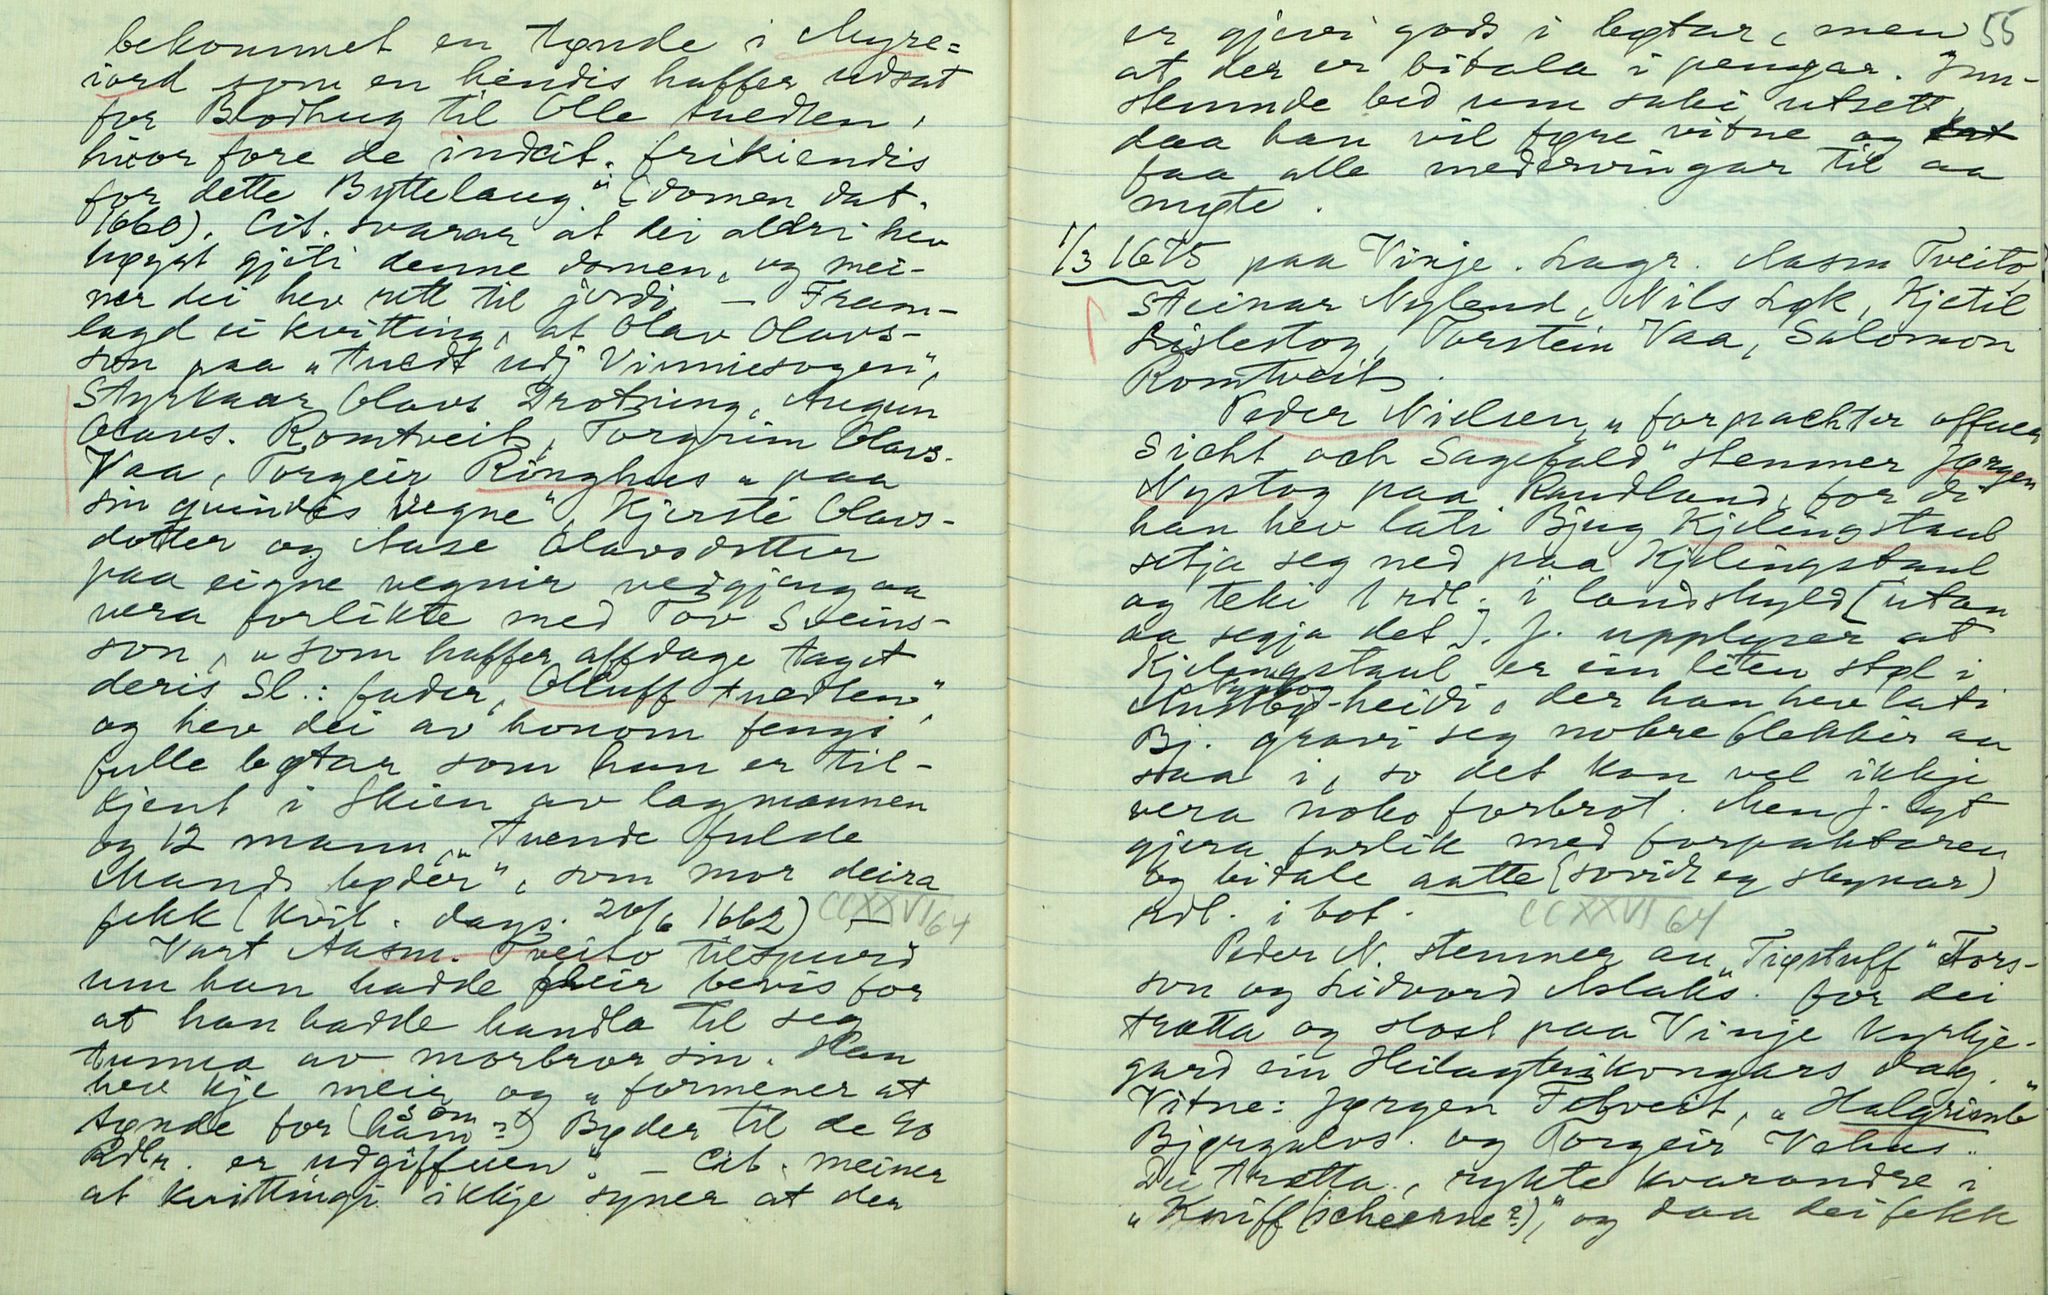 bekommet en tønde i Myre=
iord som en hendis haffer udsat
for Blodhug til Olle tuedten,
huor fore de indcit. frikiendis
for dette Byttelaug." (domen dat.
1660). Cit. svarar at dei aldri hev
høyrt gjeti denne domen, og mei-
ner dei hev rett til jordi. — Fram-
lagd ei kvitting, at Olav Olavs-
son paa "tuedt udj Vinniesogen",
Styrkaar Olavs Drotning, Augun
Olavs. Romtveit, Torgrim Olavs.
Vaa, Torgeir Ringhus "paa
sin quindis vegne", Kjersti Olavs-
dotter og Aase Olavsdotter
paa eigne vegnir vedgjeng aa
vera forlikte med Tov Sveins-
son, "som haffer affdage taget
deris Sl: fader, Olluff tuedten",
og hev dei av honom fengi
fulle bøtar som han er til-
kjent i Skien av lagmannen
og 12 mann, "tvende fulde
Mands bøder", som mor deira
fekk (kvit. dags. 20/6 1662) — CCXXVI 64
Vart Aasm. Tveito tilspurd
um han hadde fleir bevis for
at han hadde handla til seg
tunna av morbror sin. Han
hev kje meir og "formener at
tønde for (ham? som) Bøder til de 90
Rdlr. er udgiffuen". — Cit. meiner
at kvittingi ikkje syner at der
55
er gjevi gods i bøtar, men
at der er bitala i pengar. Inn-
stemnde bed um saki utsett
daa han vil føre vitne og
faa alle medervingar til aa
møte.
1/3 1675 paa Vinje. Lagr. Aasm Tveito,
Steinar Nylend, Nils Løk, Kjetil
Lislestog, Torstein Vaa, Salomon
Romtveit.
Peder Nielsen, "forpachter offuer
Sicht och Sagefald" stemner Jørgen
Nystog paa Raudland, for di
han hev lati Bjug Kjelingstaul
setja seg ned paa Kjelingstaul
og teki 1 rdl. i landskyld [utan
aa segja det]. J. upplyser at
Kjelingstaul er ein liten støl i
Nystog-heidi, der han hev lati
Bj. gravi seg nokre flekkir aa
saa i, so det kan vel ikkje
vera noko forbrot. Men J. lyt
gjera forlik med forpaktaren
og bitale aatte (sovidt eg skynar)
rdl. i bot. CCXXVI 64
Peder N. stemner an "Tiøstuff" Tors-
son og Sidvord Aslaks. for dei
trætta og slost paa Vinje kyrkje-
gard ein Heilagtrikongars dag.
Vitne: Jørgen Flotveit, "Halgrimb"
Bjørgulvs. og Torgeir Vehus.
Dei trætta, rykte kvarandre i
"Kniff(scheerne?)," og daa dei fekk